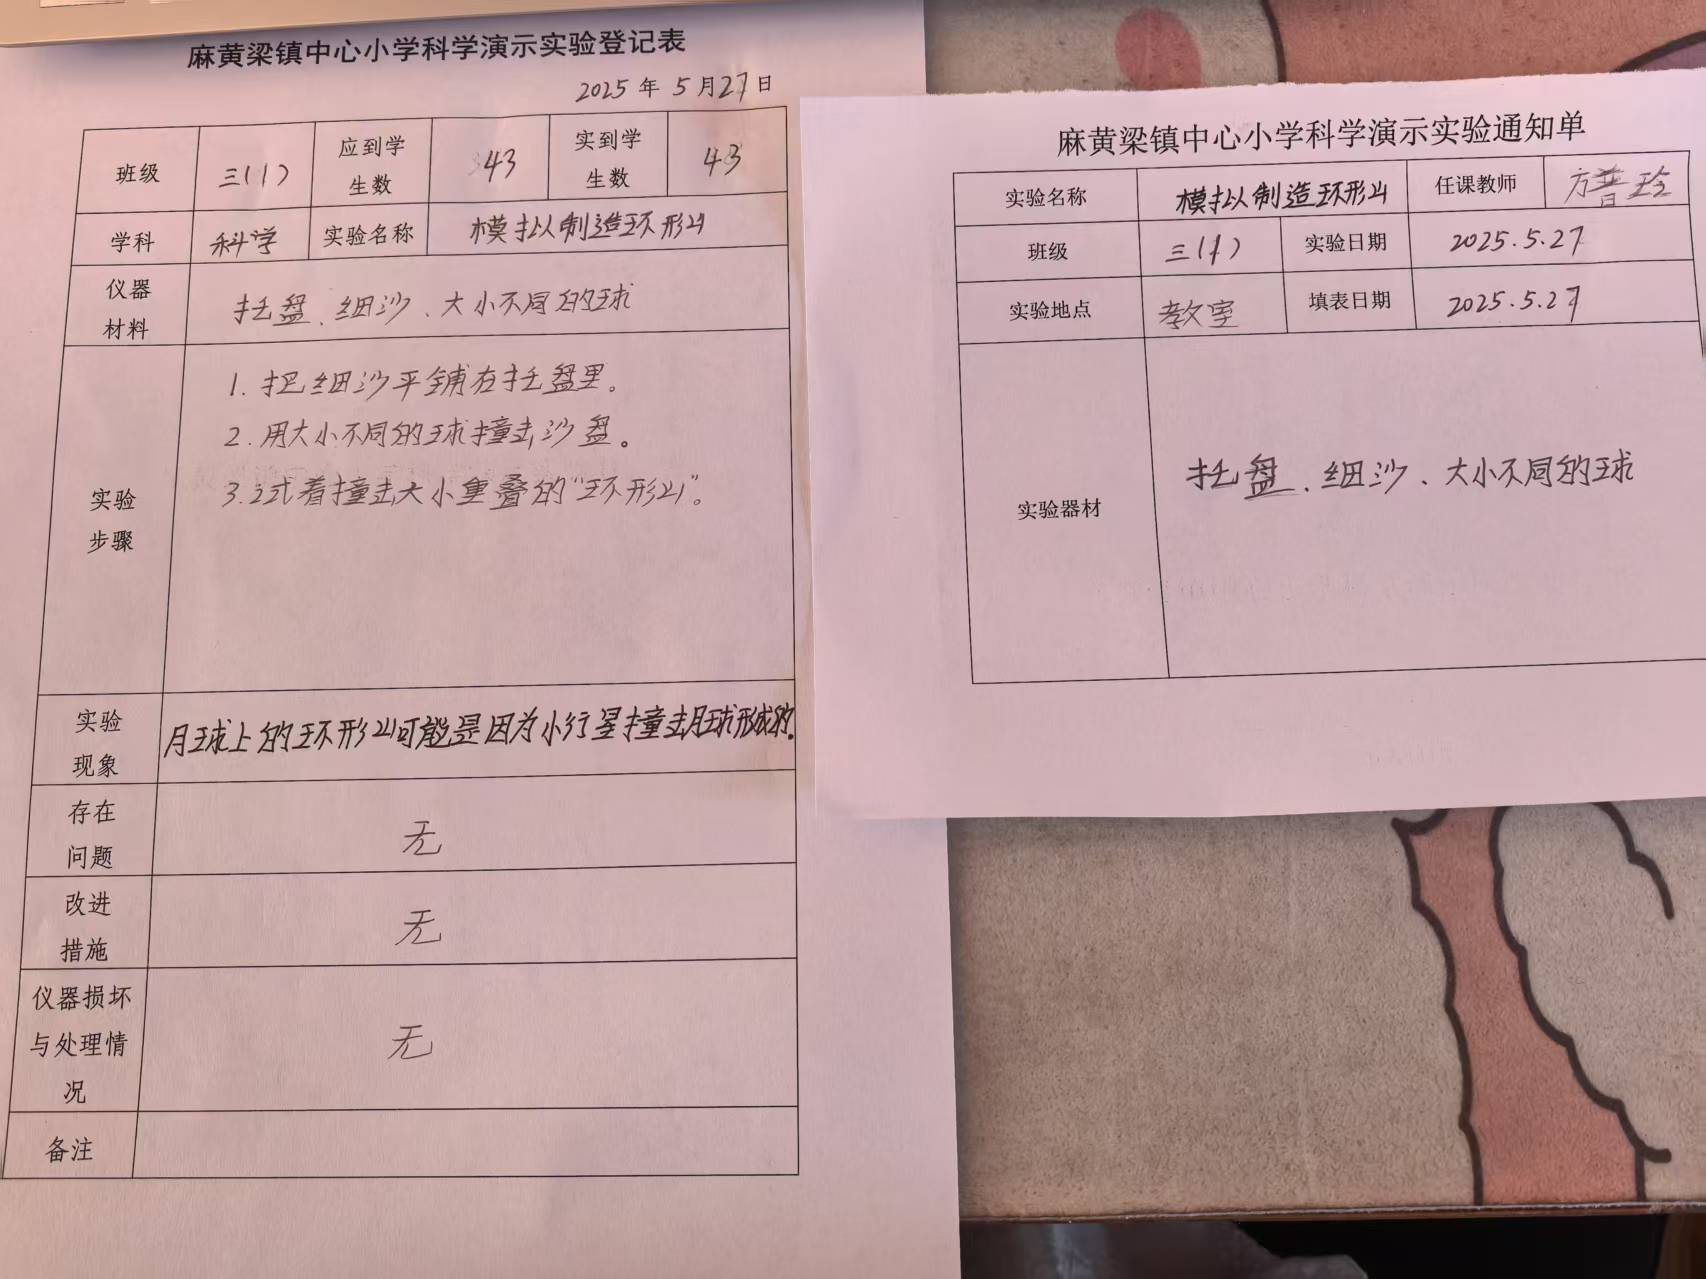 麻黄梁镇中心小学科学演示实验登记表
2025 年 5 月 27 日
班级 三(1) 应到学生数 43 实到学生数 43
学科 科学 实验名称 模拟制造环形山
仪器材料 托盘、细沙、大小不同的球
实验步骤
1. 把细沙平铺在托盘里。
2. 用大小不同的球撞击沙盘。
3. 试着撞击大小重叠的“环形山”。
实验现象 月球上的环形山可能是因为小行星撞击月球形成的.
存在问题 无
改进措施 无
仪器损坏与处理情况 无
备注
麻黄梁镇中心小学科学演示实验通知单
实验名称 模拟制造环形山 任课教师 方普玲
班级 三(1) 实验日期 2025.5.27
实验地点 教室 填表日期 2025.5.27
实验器材 托盘、细沙、大小不同的球